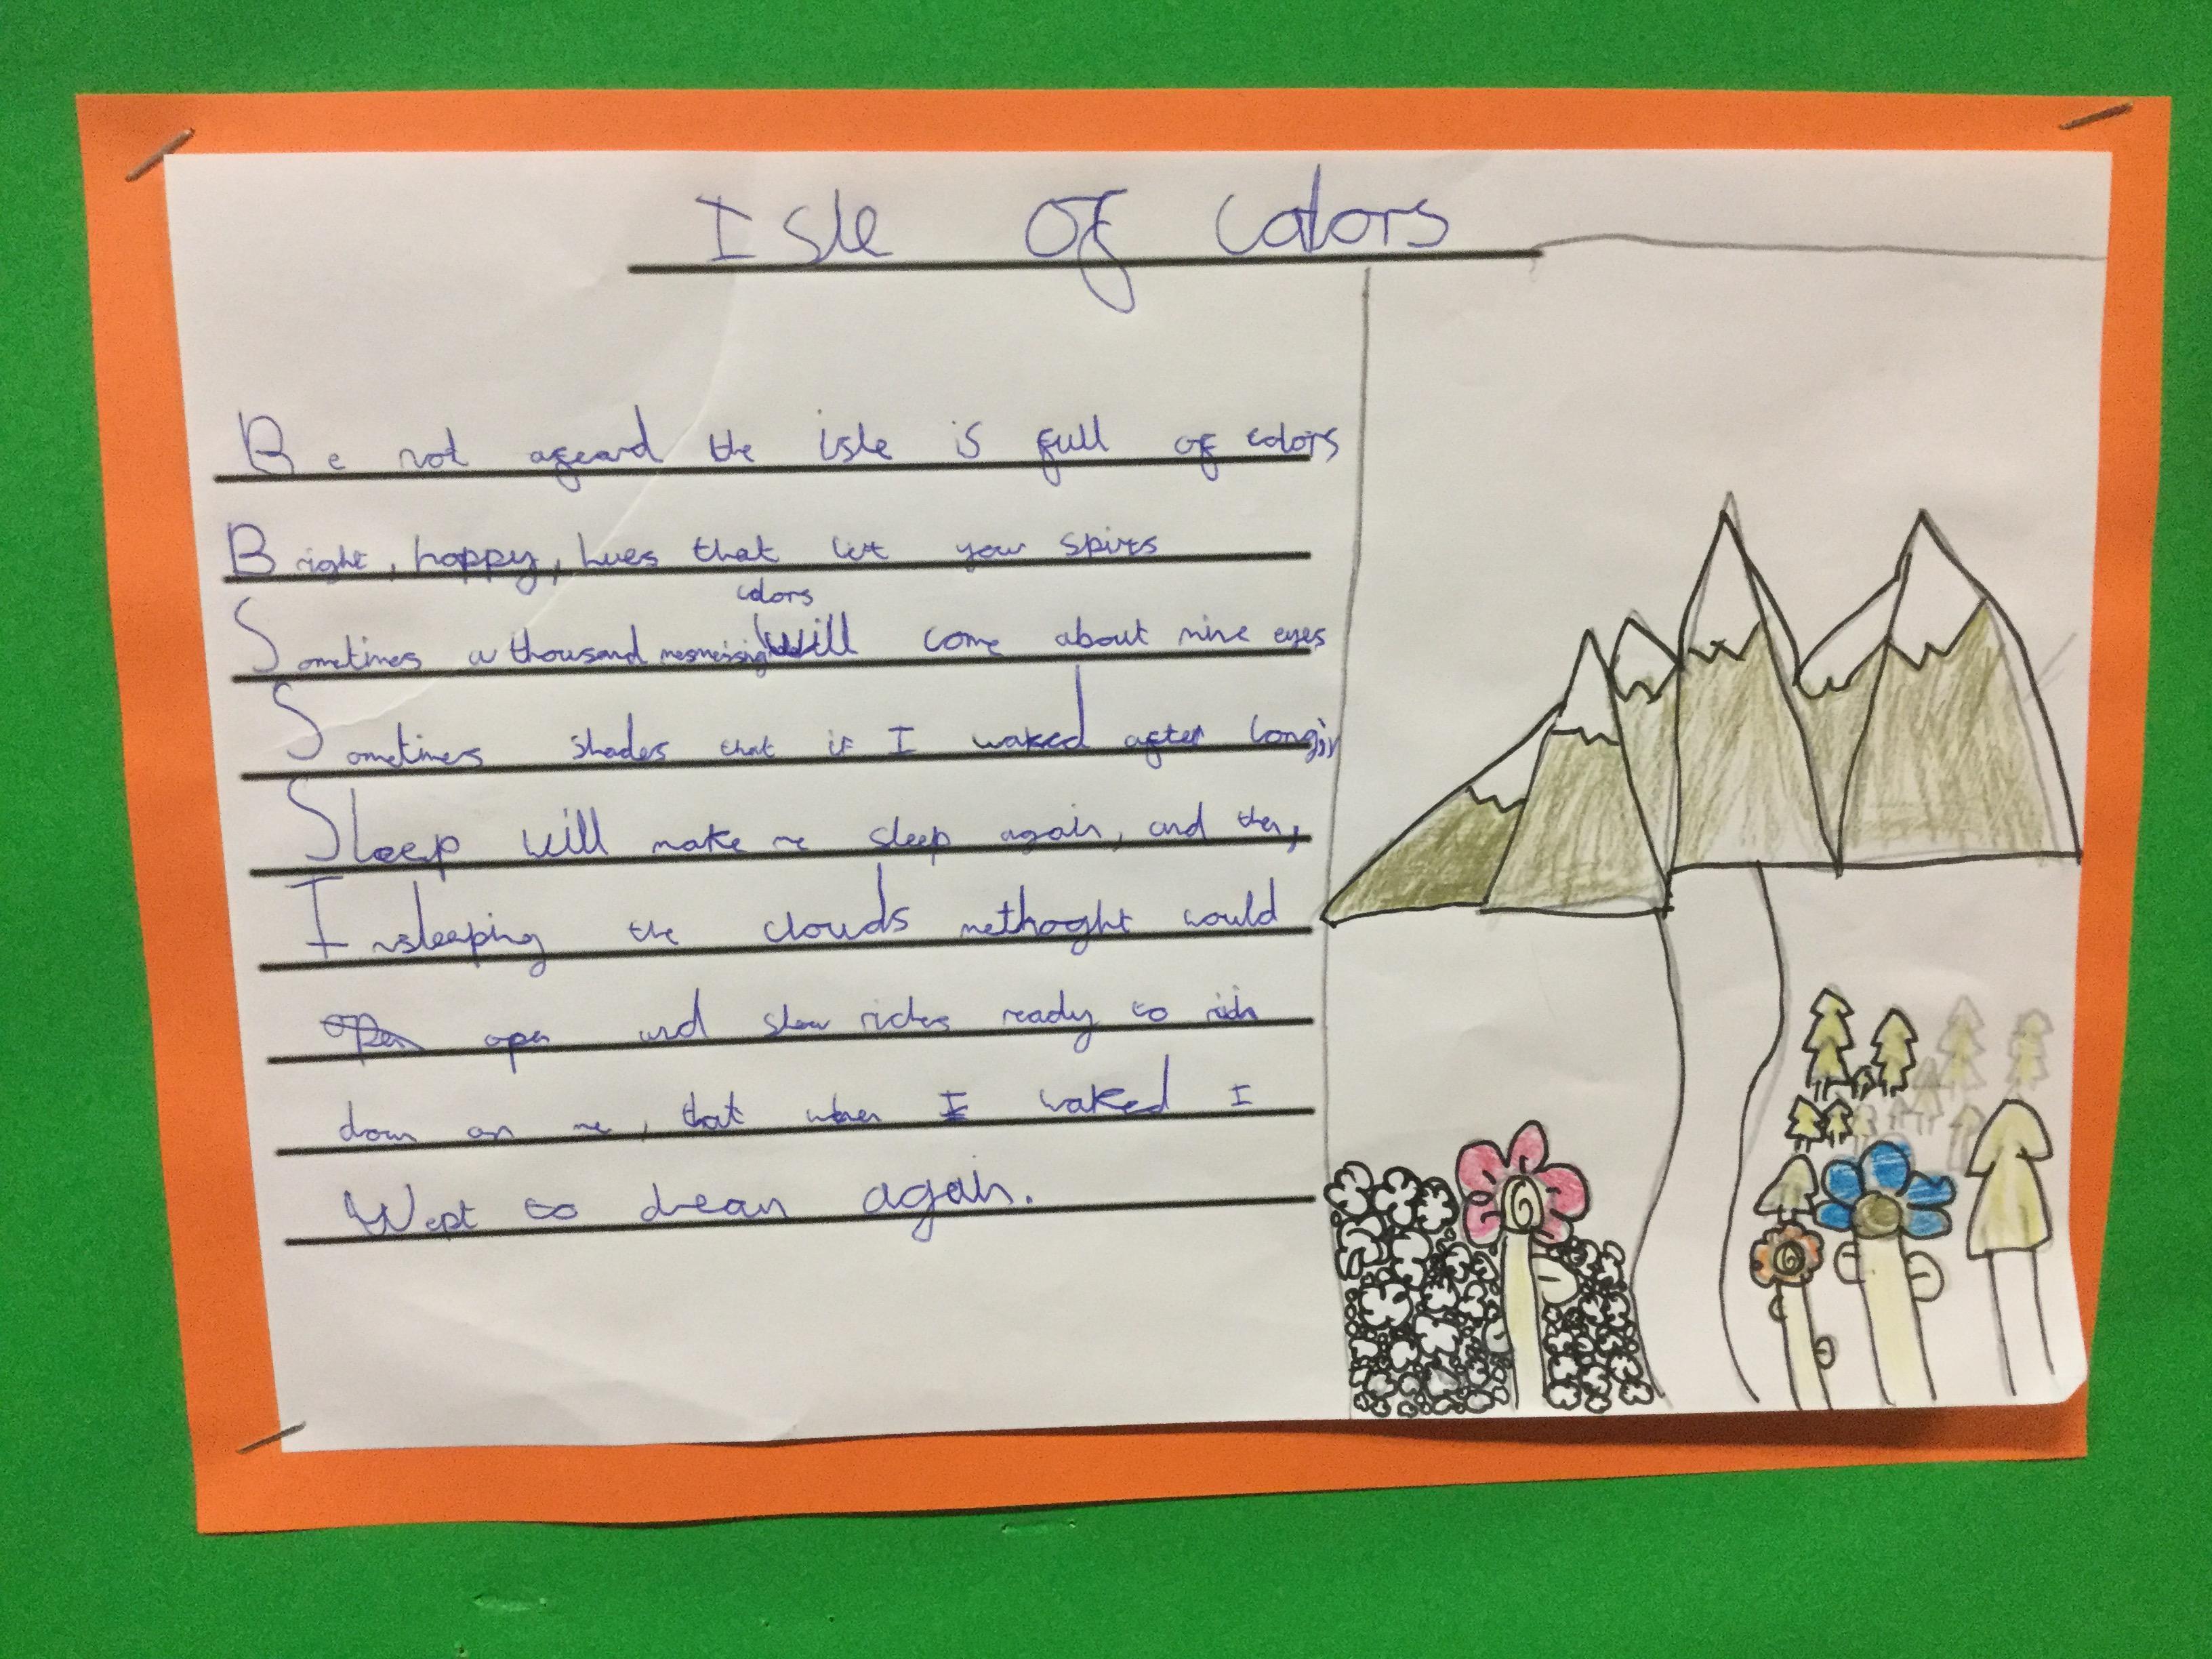 Isle Of Colors
Be not afeard the isle is full of colors
Bright, happy, hues that lift your spirits
colors
Sometimes a thousand mesmerising will come about mine eyes
Sometimes shades that if I waked after long
Sleep will make me sleep again, and then,
In sleeping the clouds methoght would
open open and show riches ready to
down on me, that when I waked I
Wept to dream again.